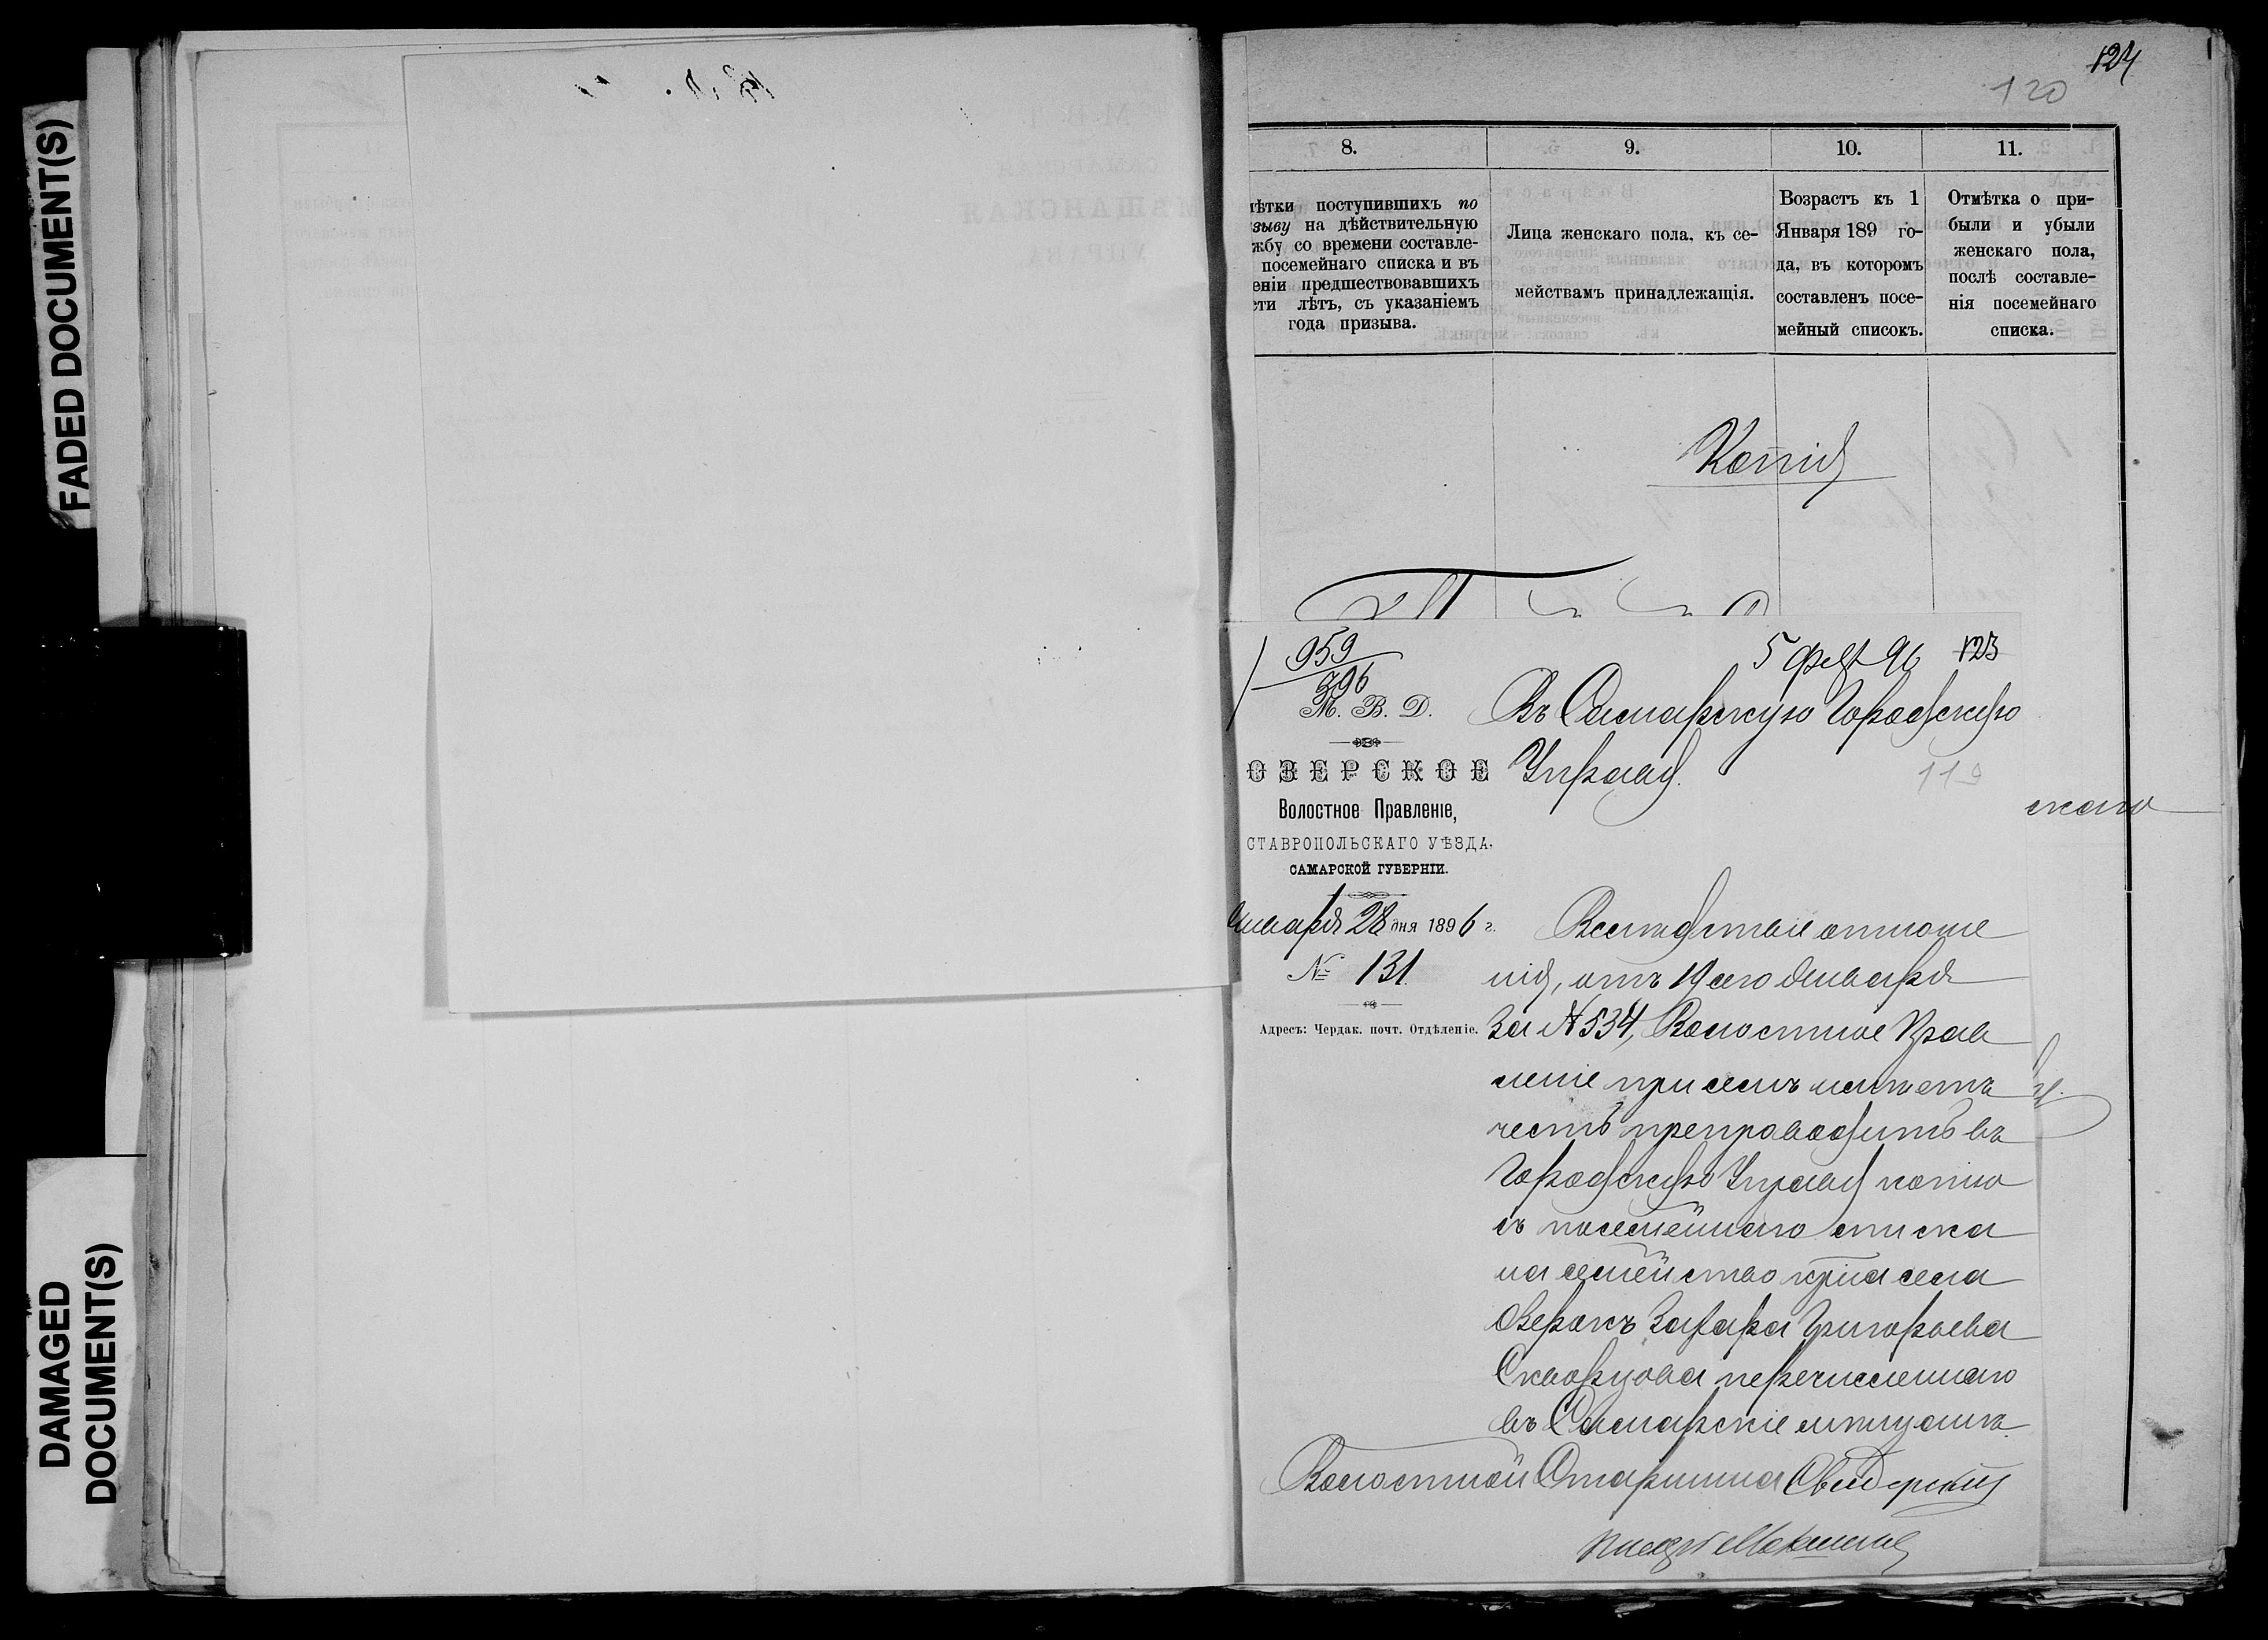 FADED DOCUMENT(S)
DAMAGED
DOCUMENT(S)
124
120
8.
9.
10.
11.
мѣтки поступившихъ по
зыву на дѣйствительную
жбу со времени составле-
посемейнаго списка и въ
еніи предшествовавшихъ
сти лѣтъ, съ указаніемъ
года призыва.
Лица женскаго пола, къ се-
мействамъ принадлежащія.
Возрастъ къ 1
Января 189 го-
да, въ которомъ
составленъ посе-
мейный списокъ.
Отмѣтка о при-
были и убыли
женскаго пола,
послѣ составле-
нія посемейнаго
списка.
Копія
959
396
5 фев 96
123
М. В. Д.
ОЗЕРСКОЕ
Волостное Правленіе,
СТАВРОПОЛЬСКАГО УѢЗДА,
САМАРСКОЙ ГУБЕРНІИ.
Января 28 дня 1896 г.
№ 131.
Адресъ: Чердак. почт. Отдѣленіе.
Въ Самарскую Городскую
Управу.
119
скаго
Вслѣдствіе отноше
нія, отъ 19 сего Января
за № 534, Волостное Прав
леніе при семъ имѣетъ
честь препроводить въ
Городскую Управу копію
съ посемейнаго списка
на семейство кр-на села
Озерокъ Захара Григорьева
Скворцова перечисленнаго
въ Самарскіе мѣщане
Волостной Старшина Свидерскій